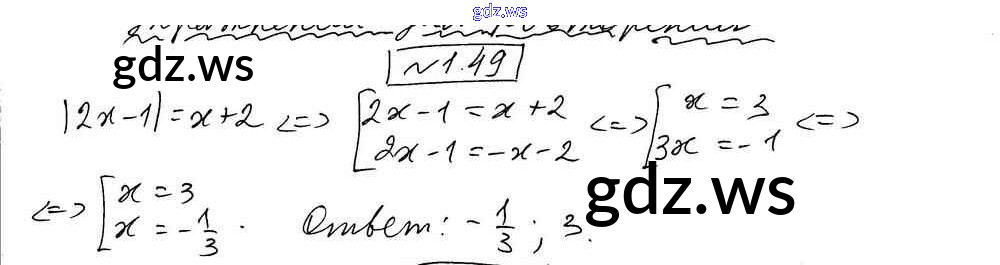 gdz.ws
gdz.ws
№1.49
|2x-1|=x+2 <=> [2x-1=x+2 <=> [x=3 <=>
2x-1=-x-2 3x=-1
gdz.ws
<=> [x=3
x=-1/3. Ответ: -1/3; 3.